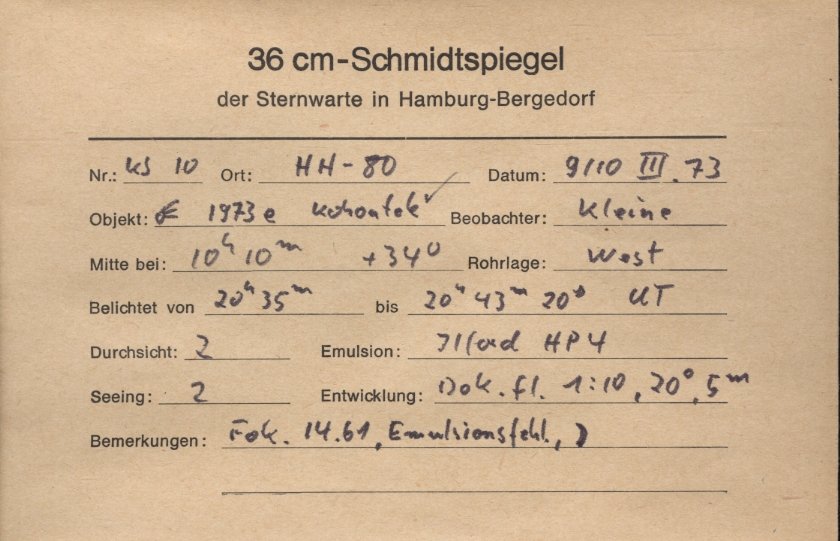 36 cm-Schmidtspiegel
der Sternwarte in Hamburg-Bergedorf
Nr.: KS 10 Ort: HH-80 Datum: 9/10 III. 73
Objekt: 1973e Kohoutek Beobachter: Kleine
Mitte bei: 10h 10m +34° Rohrlage: West
Belichtet von 20h 35m bis 20h 43m 20s UT
Durchsicht: 2 Emulsion: Ilford HP4
Seeing: 2 Entwicklung: Dok. fl. 1:10, 20°, 5m
Bemerkungen: Fok. 14.61, Emulsionsfehl.,